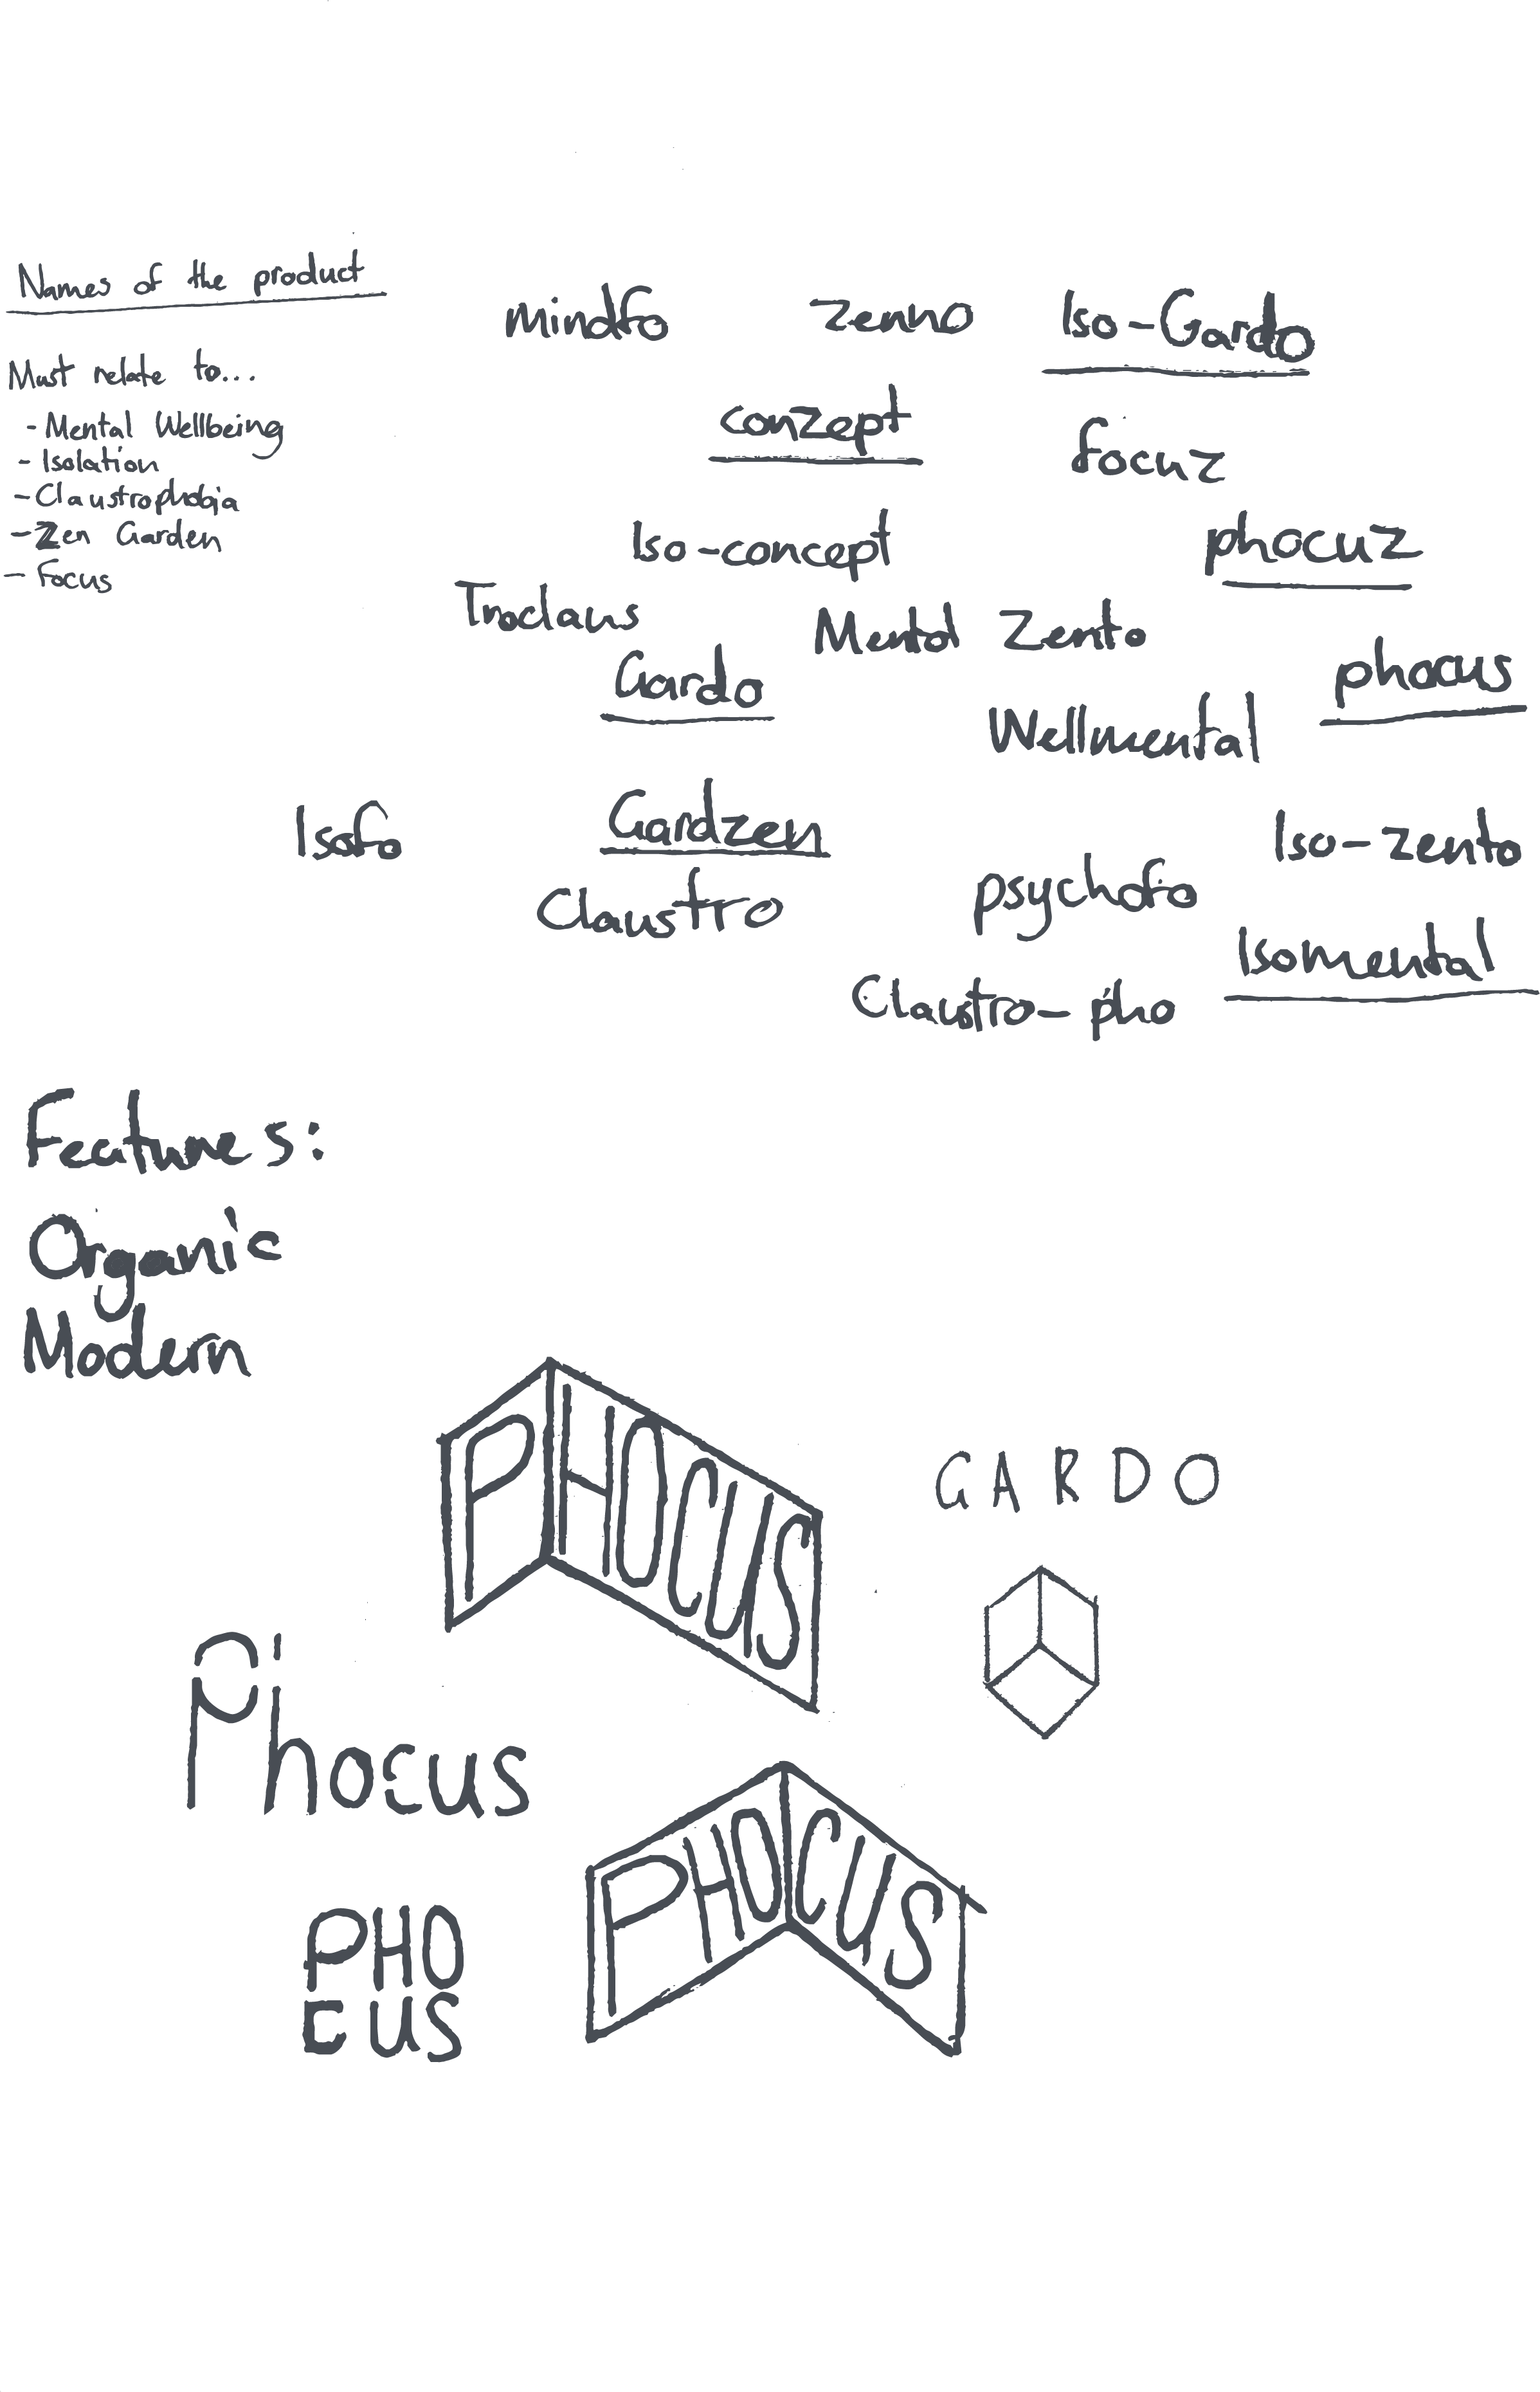 Names of the product
Must relate to...
- Mental Wellbeing
- Isolation
- Claustrophobia
- Zen Garden
- Focus
Mindfo
Zenno
Iso-Gardo
conzept
focuz
Iso-concept
phocuz
Troclaus
Mental Zento
Gardo
phocus
Wellmental
Isofo
Gardzen
Iso-zento
Claustro
psychofo
Isomental
Claustro-pho
Features:
Organic
Modern
PHOCUS
GARDO
Phocus
PHOCUS
PHO
CUS